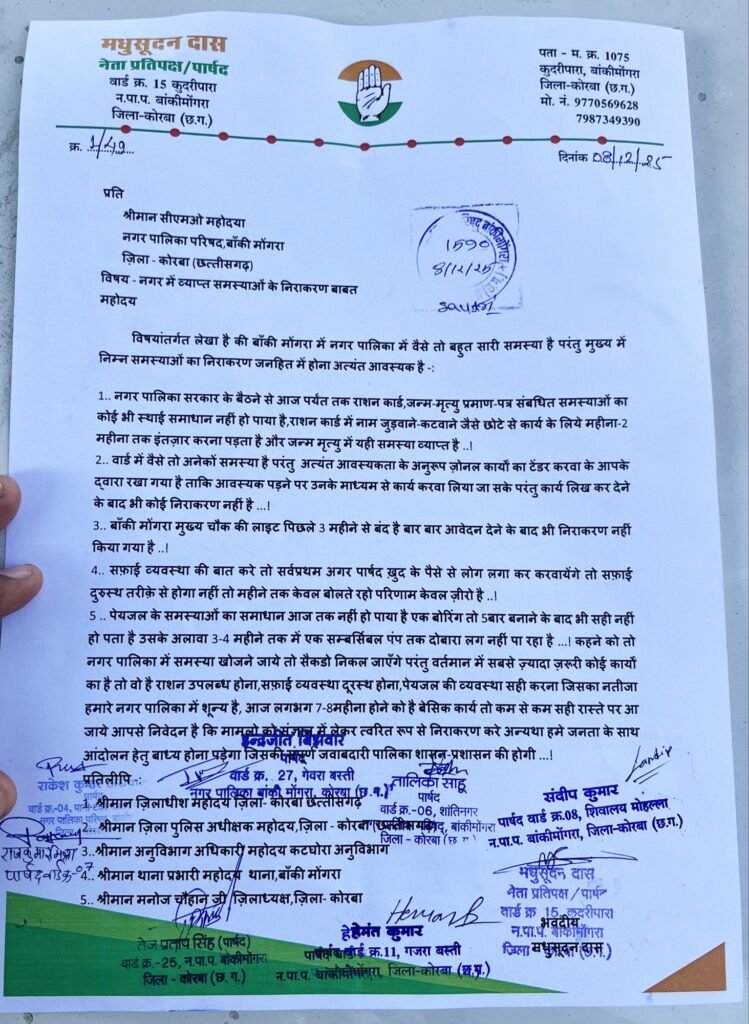 मधुसूदन दास
नेता प्रतिपक्ष/पार्षद
वार्ड क्र. 15 कुदरीपारा
न.पा.प. बांकीमोंगरा
जिला-कोरबा (छ.ग.)
पता - म. क्र. 1075
कुदरीपारा, बांकीमोंगरा
जिला-कोरबा (छ.ग.)
मो. नं. 9770569628
7987349390
क्र. 1/49
दिनांक 08/12/25
प्रति
श्रीमान सीएमओ महोदया
नगर पालिका परिषद,बाँकी मोंगरा
ज़िला - कोरबा (छत्तीसगढ़)
विषय - नगर में व्याप्त समस्याओं के निराकरण बाबत
महोदय
बांकीमोंगरा
1590
8/12/25
विषयांतर्गत लेखा है की बाँकी मोंगरा में नगर पालिका में वैसे तो बहुत सारी समस्या है परंतु मुख्य में
निम्न समस्याओं का निराकरण जनहित में होना अत्यंत आवस्यक है -:
1.. नगर पालिका सरकार के बैठने से आज पर्यंत तक राशन कार्ड,जन्म-मृत्यु प्रमाण-पत्र संबधित समस्याओं का
कोई भी स्थाई समाधान नहीं हो पाया है,राशन कार्ड में नाम जुड़वाने-कटवाने जैसे छोटे से कार्य के लिये महीना-2
महीना तक इंतज़ार करना पड़ता है और जन्म मृत्यु में यही समस्या व्याप्त है ..!
2.. वार्ड में वैसे तो अनेकों समस्या है परंतु अत्यंत आवस्यकता के अनुरूप ज़ोनल कार्यों का टेंडर करवा के आपके
द्वारा रखा गया है ताकि आवस्यक पड़ने पर उनके माध्यम से कार्य करवा लिया जा सके परंतु कार्य लिख कर देने
के बाद भी कोई निराकरण नहीं है ...!
3.. बाँकी मोंगरा मुख्य चौक की लाइट पिछले 3 महीने से बंद है बार बार आवेदन देने के बाद भी निराकरण नहीं
किया गया है ..!
4.. सफ़ाई व्यवस्था की बात करे तो सर्वप्रथम अगर पार्षद ख़ुद के पैसे से लोग लगा कर करवायेंगे तो सफ़ाई
दुरुस्थ तरीक़े से होगा नहीं तो महीने तक केवल बोलते रहो परिणाम केवल ज़ीरो है ..!
5 .. पेयजल के समस्याओं का समाधान आज तक नहीं हो पाया है एक बोरिंग तो 5बार बनाने के बाद भी सही नहीं
हो पता है उसके अलावा 3-4 महीने तक में एक सम्बर्सिबल पंप तक दोबारा लग नहीं पा रहा है ...! कहने को तो
नगर पालिका में समस्या खोजने जाये तो सैकडो निकल जाएँगे परंतु वर्तमान में सबसे ज़्यादा ज़रुरी कोई कार्यो
का है तो वो है राशन उपलब्ध होना,सफ़ाई व्यवस्था दूरस्थ होना,पेयजल की व्यवस्था सही करना जिसका नतीजा
हमारे नगर पालिका में शून्य है, आज लगभग 7-8महीना होने को है बेसिक कार्य तो कम से कम सही रास्ते पर आ
जाये आपसे निवेदन है कि मामलो को संज्ञान में लेकर त्वरित रूप से निराकरण करे अन्यथा हमे जनता के साथ
आंदोलन हेतु बाध्य होना पड़ेगा जिसकी संपूर्ण जवाबदारी पालिका शासन-प्रशासन की होगी ...!
इन्द्रजीत बिंझवार
पार्षद
वार्ड क्र. 27, गेवरा बस्ती
नगर पालिका बांकी मोंगरा, कोरबा (छ.ग.)
प्रतिलीपि
राकेश कुमार
पार्षद
वार्ड क्र.-04,
तालिका साहू
पार्षद
वार्ड क्र.-06, शांतिनगर
बांकीमोंगरा
जिला-कोरबा (छ.ग.)
संदीप कुमार
पार्षद वार्ड क्र.08, शिवालय मोहल्ला
न.पा.प. बांकीमोंगरा, जिला-कोरबा (छ.ग.)
1. श्रीमान ज़िलाधीश महोदय ज़िला- कोरबा छत्तीसगढ़
2.. श्रीमान ज़िला पुलिस अधीक्षक महोदय,ज़िला - कोरबा
3..श्रीमान अनुविभाग अधिकारी महोदय कटघोरा अनुविभाग
4.. श्रीमान थाना प्रभारी महोदय थाना,बाँकी मोंगरा
5.. श्रीमान मनोज चौहान जी ज़िलाध्यक्ष,ज़िला - कोरबा
पार्षद वार्ड क्र-07
मधुसूदन दास
नेता प्रतिपक्ष / पार्षद
वार्ड क्र. 15, कुदरीपारा
न.पा.प. बांकीमोंगरा
भवदीय
मधुसूदन दास
तेज प्रताप सिंह (पार्षद)
वार्ड क्र.-25, न.पा.प. बांकीमोंगरा
जिला - कोरबा (छ.ग.)
हेमंत कुमार
पार्षद वार्ड क्र.11, गजरा बस्ती
न.पा.प. बांकीमोंगरा, जिला-कोरबा (छ.ग.)